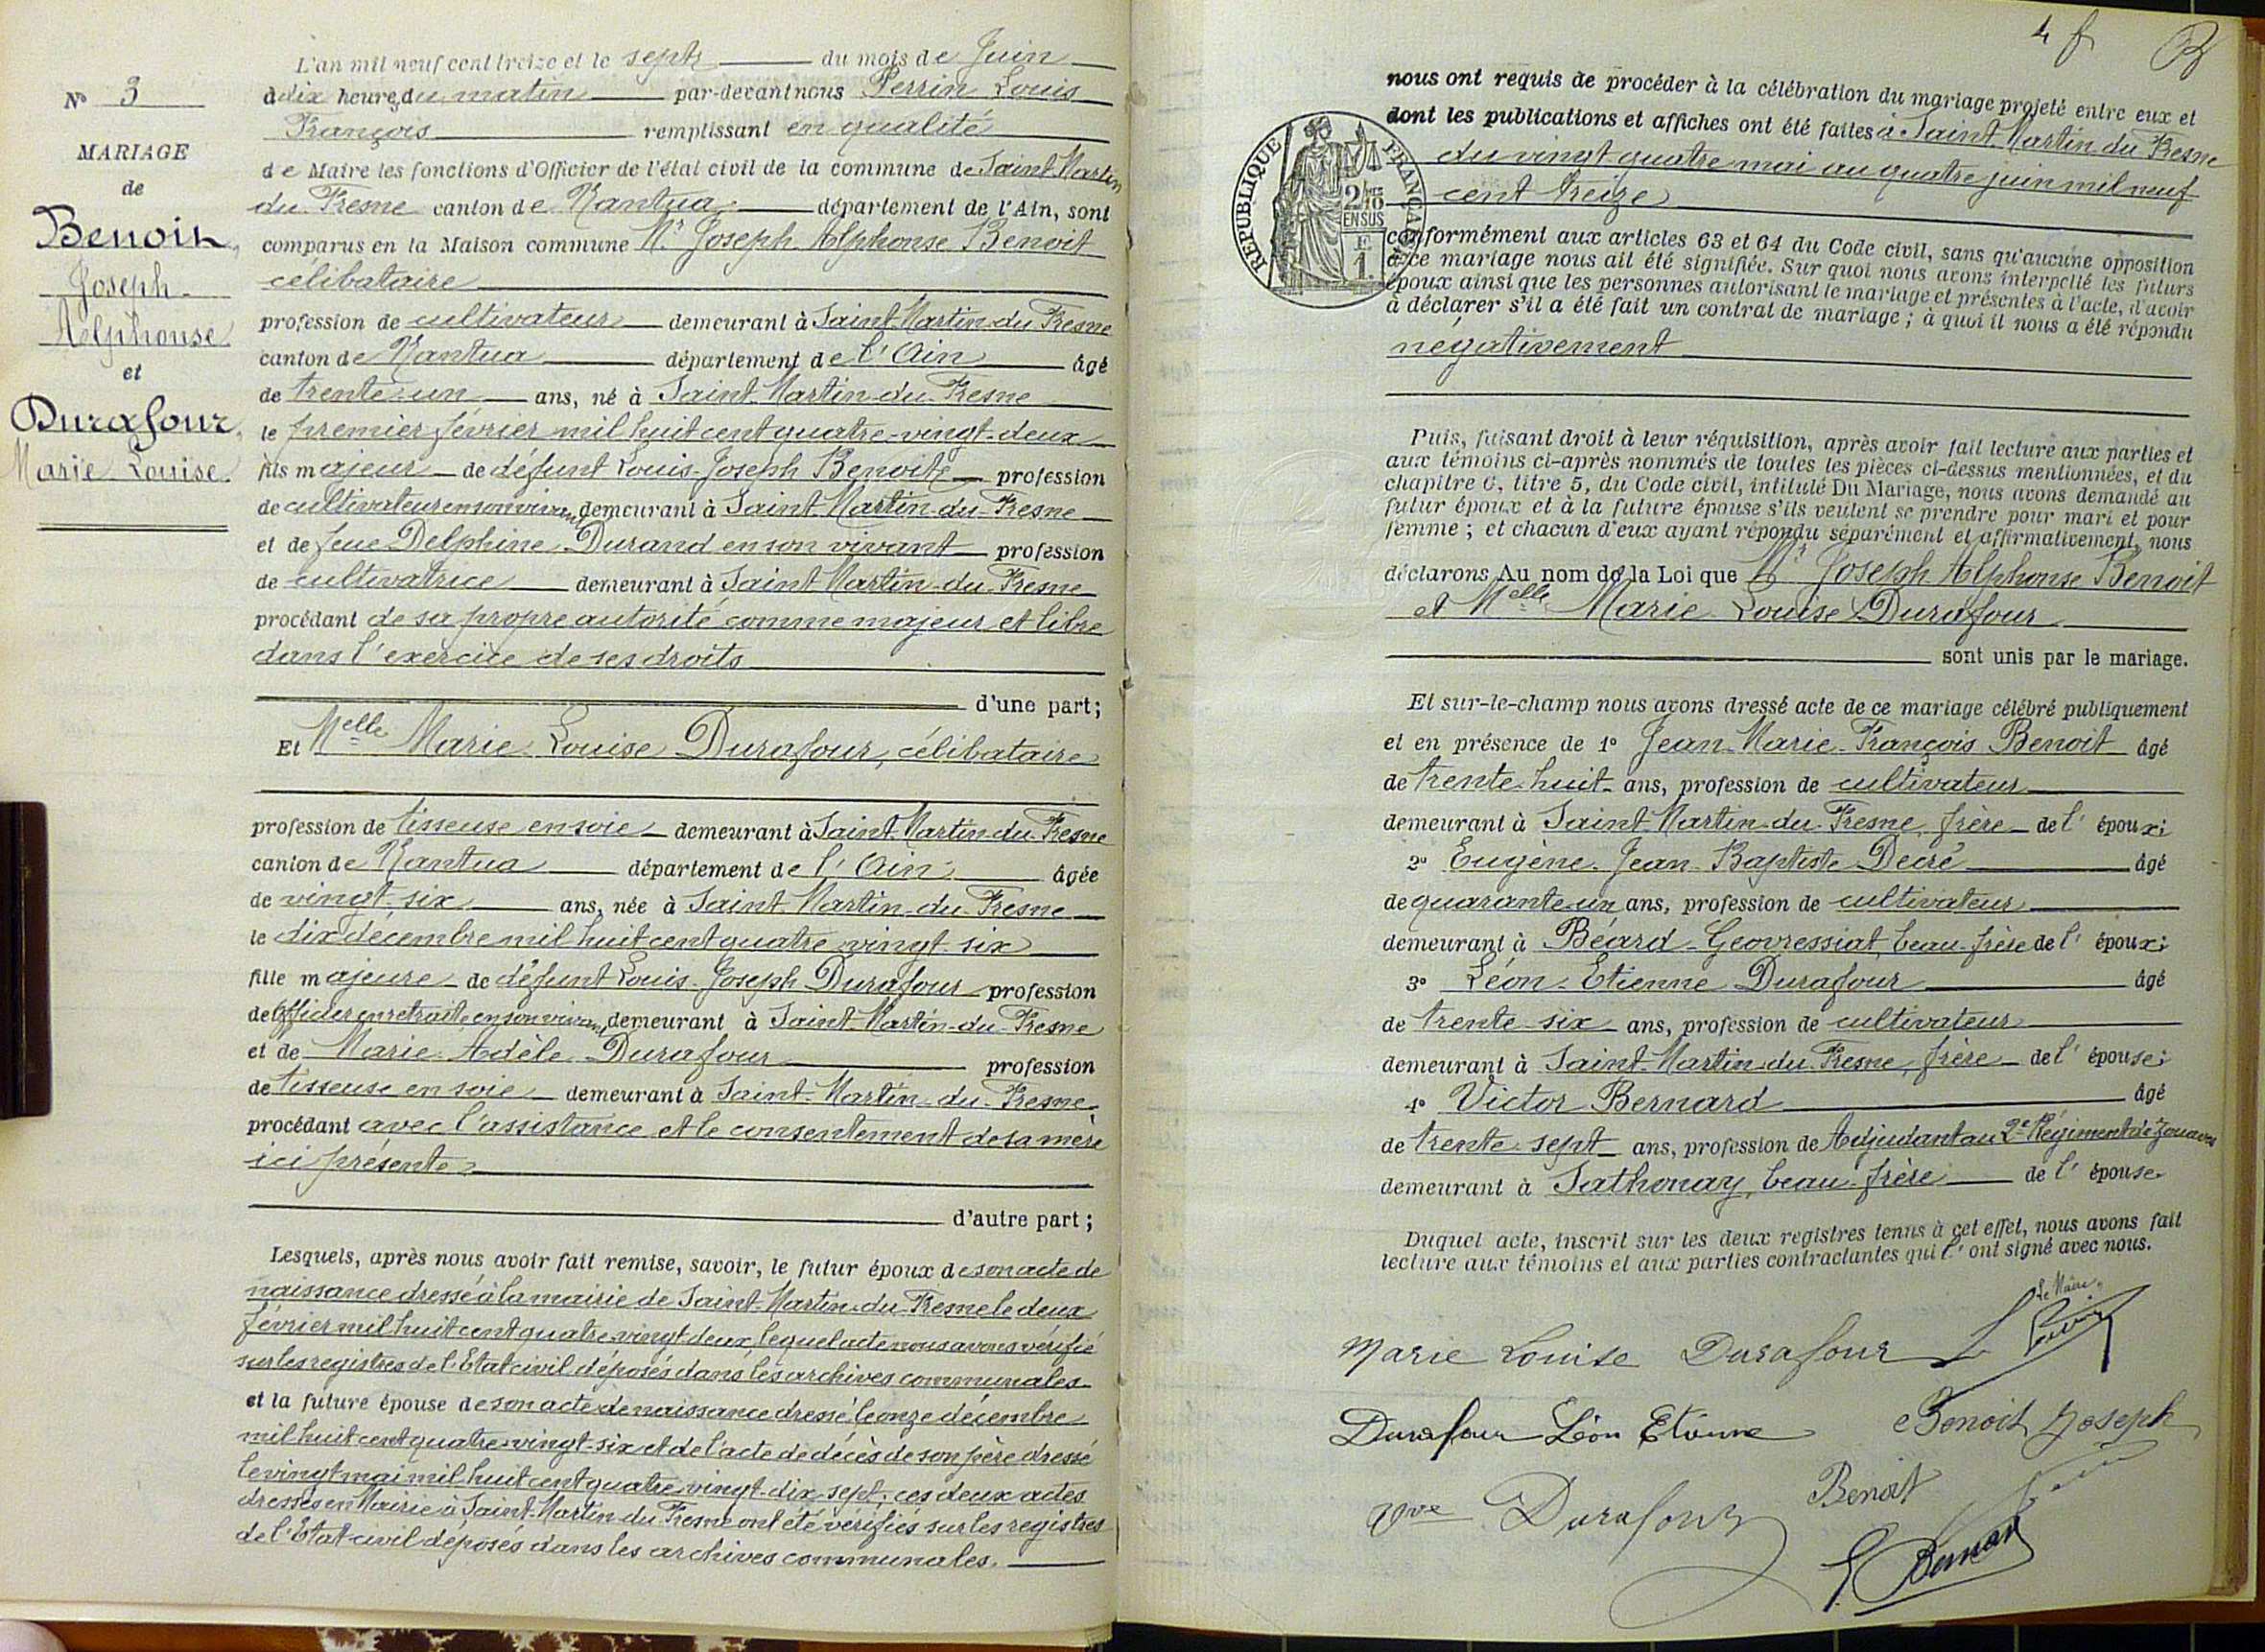 N° 3
MARIAGE
de
Benoit,
Joseph
Alphonse
et
Durafour,
Marie Louise.
L'an mil neuf cent treize et le sept du mois de Juin
à dix heures du matin par-devant nous Perrin Louis
François remplissant en qualité
de Maire les fonctions d'Officier de l'état civil de la commune de Saint-Martin
du Fresne canton de Nantua département de l'Ain, sont
comparus en la Maison commune Mr Joseph Alphonse Benoit
célibataire
profession de cultivateur demeurant à Saint-Martin-du-Fresne
canton de Nantua département de l'Ain âgé
de trente-un ans, né à Saint-Martin-du-Fresne
le premier février mil huit cent quatre-vingt-deux
fils majeur de défunt Louis-Joseph Benoit profession
de cultivateur en son vivant demeurant à Saint-Martin-du-Fresne
et de feue Delphine Durand en son vivant profession
de cultivatrice demeurant à Saint-Martin-du-Fresne
procédant de sa propre autorité comme majeur et libre
dans l'exercice de ses droits
d'une part;
Et Melle Marie Louise Durafour, célibataire
profession de tisseuse en soie demeurant à Saint-Martin-du-Fresne
canton de Nantua département de l'Ain âgée
de vingt-six ans, née à Saint-Martin-du-Fresne
le dix décembre mil huit cent quatre-vingt-six
fille majeure de défunt Louis-Joseph Durafour profession
de officier en retraite en son vivant demeurant à Saint-Martin-du-Fresne
et de Marie-Adèle Durafour profession
de tisseuse en soie demeurant à Saint-Martin-du-Fresne
procédant avec l'assistance et le consentement de sa mère
ici présente
d'autre part;
Lesquels, après nous avoir fait remise, savoir, le futur époux de son acte de
naissance dressé à la mairie de Saint-Martin-du-Fresne le deux
février mil huit cent quatre-vingt-deux, lequel acte nous avons vérifié
sur les registres de l'Etat civil déposés dans les archives communales
et la future épouse de son acte de naissance dressé le onze décembre
mil huit cent quatre-vingt-six et de l'acte de décès de son père dressé
le vingt mai mil huit cent quatre-vingt-dix-sept; ces deux actes
dressés en Mairie à Saint-Martin-du-Fresne ont été vérifiés sur les registres
de l'Etat-civil déposés dans les archives communales.
4 f
nous ont requis de procéder à la célébration du mariage projeté entre eux et
dont les publications et affiches ont été faites à Saint-Martin-du-Fresne
du vingt quatre mai au quatre juin mil neuf
cent treize
RÉPUBLIQUE FRANÇAISE
2/10
EN SUS
F
1.
conformément aux articles 63 et 64 du Code civil, sans qu'aucune opposition
à ce mariage nous ait été signifiée. Sur quoi nous avons interpellé les futurs
époux ainsi que les personnes autorisant le mariage et présentes à l'acte, d'avoir
à déclarer s'il a été fait un contrat de mariage; à quoi il nous a été répondu
négativement
Puis, faisant droit à leur réquisition, après avoir fait lecture aux parties et
aux témoins ci-après nommés de toutes les pièces ci-dessus mentionnées, et du
chapitre 6, titre 5, du Code civil, intitulé Du Mariage, nous avons demandé au
futur époux et à la future épouse s'ils veulent se prendre pour mari et pour
femme; et chacun d'eux ayant répondu séparément et affirmativement, nous
déclarons Au nom de la Loi que Mr Joseph Alphonse Benoit
et Melle Marie Louise Durafour
sont unis par le mariage.
Et sur-le-champ nous avons dressé acte de ce mariage célébré publiquement
et en présence de 1° Jean-Marie-François Benoit âgé
de trente-huit ans, profession de cultivateur
demeurant à Saint-Martin-du-Fresne, frère de l'époux;
2° Eugène-Jean-Baptiste Decré âgé
de quarante-un ans, profession de cultivateur
demeurant à Béard-Geovressiat, beau-frère de l'époux;
3° Léon-Etienne Durafour âgé
de trente-six ans, profession de cultivateur
demeurant à Saint-Martin-du-Fresne, frère de l'épouse;
4° Victor Bernard âgé
de trente-sept ans, profession de Adjudant au 2e Régiment de Zouaves
demeurant à Sathonay, beau-frère de l'épouse
Duquel acte, inscrit sur les deux registres tenus à cet effet, nous avons fait
lecture aux témoins et aux parties contractantes qui l'ont signé avec nous.
Le Maire,
Marie Louise Durafour L Perrin
Durafour Léon Etienne Benoit Joseph
Vve Durafour Benoit
Bernard